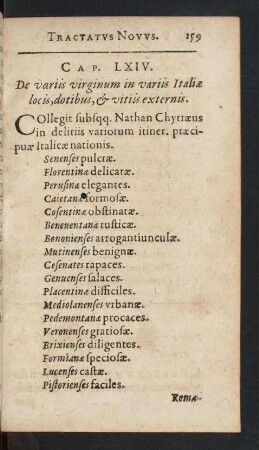 TRACTATVS NOVVS. 159
CAP. LXIV.
De variis virginum in variis Italiæ
locis, dotibus, & vitiis externis.
COllegit subsqq. Nathan Chytræus
in delitiis variorum itiner. præci-
puæ Italicæ nationis.
Senenses pulcræ.
Florentinæ delicatæ.
Perusinæ elegantes.
Caietanæ formosæ.
Cosentinæ obstinatæ.
Beneuentanæ rusticæ.
Bononienses arrogantiunculæ.
Mutinenses benignæ.
Cesenates rapaces.
Genuenses salaces.
Placentinæ difficiles.
Mediolanenses vrbanæ.
Pedemontanæ procaces.
Veronenses gratiosæ.
Brixienses diligentes.
Formianæ speciosæ.
Lucenses castæ.
Pistorienses faciles.
Romæ-